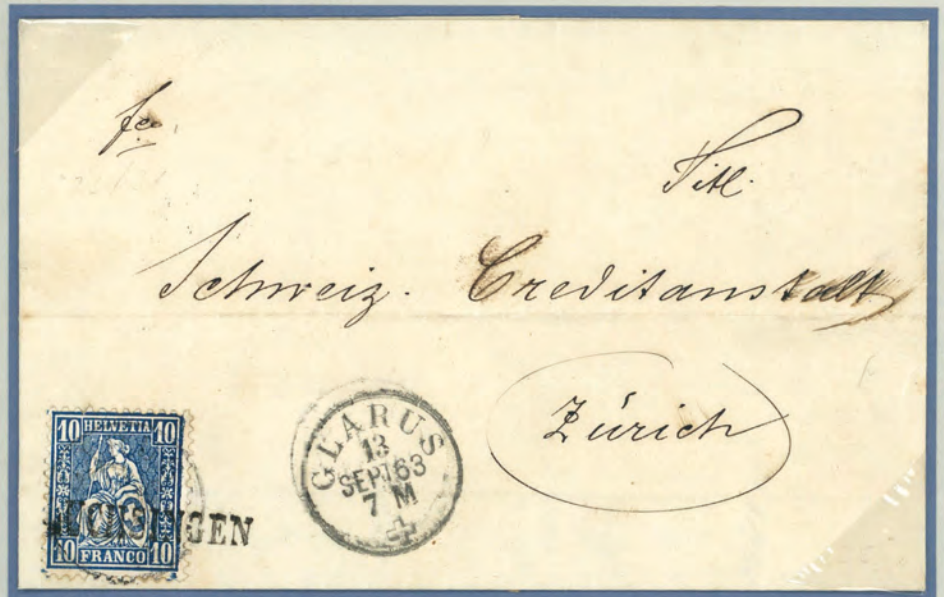 fco.
Titl.
Schweiz. Creditanstalt
Zürich
GLARUS
13
SEPT 63
7 M
10 HELVETIA 10
LUCHSINGEN
10 FRANCO 10